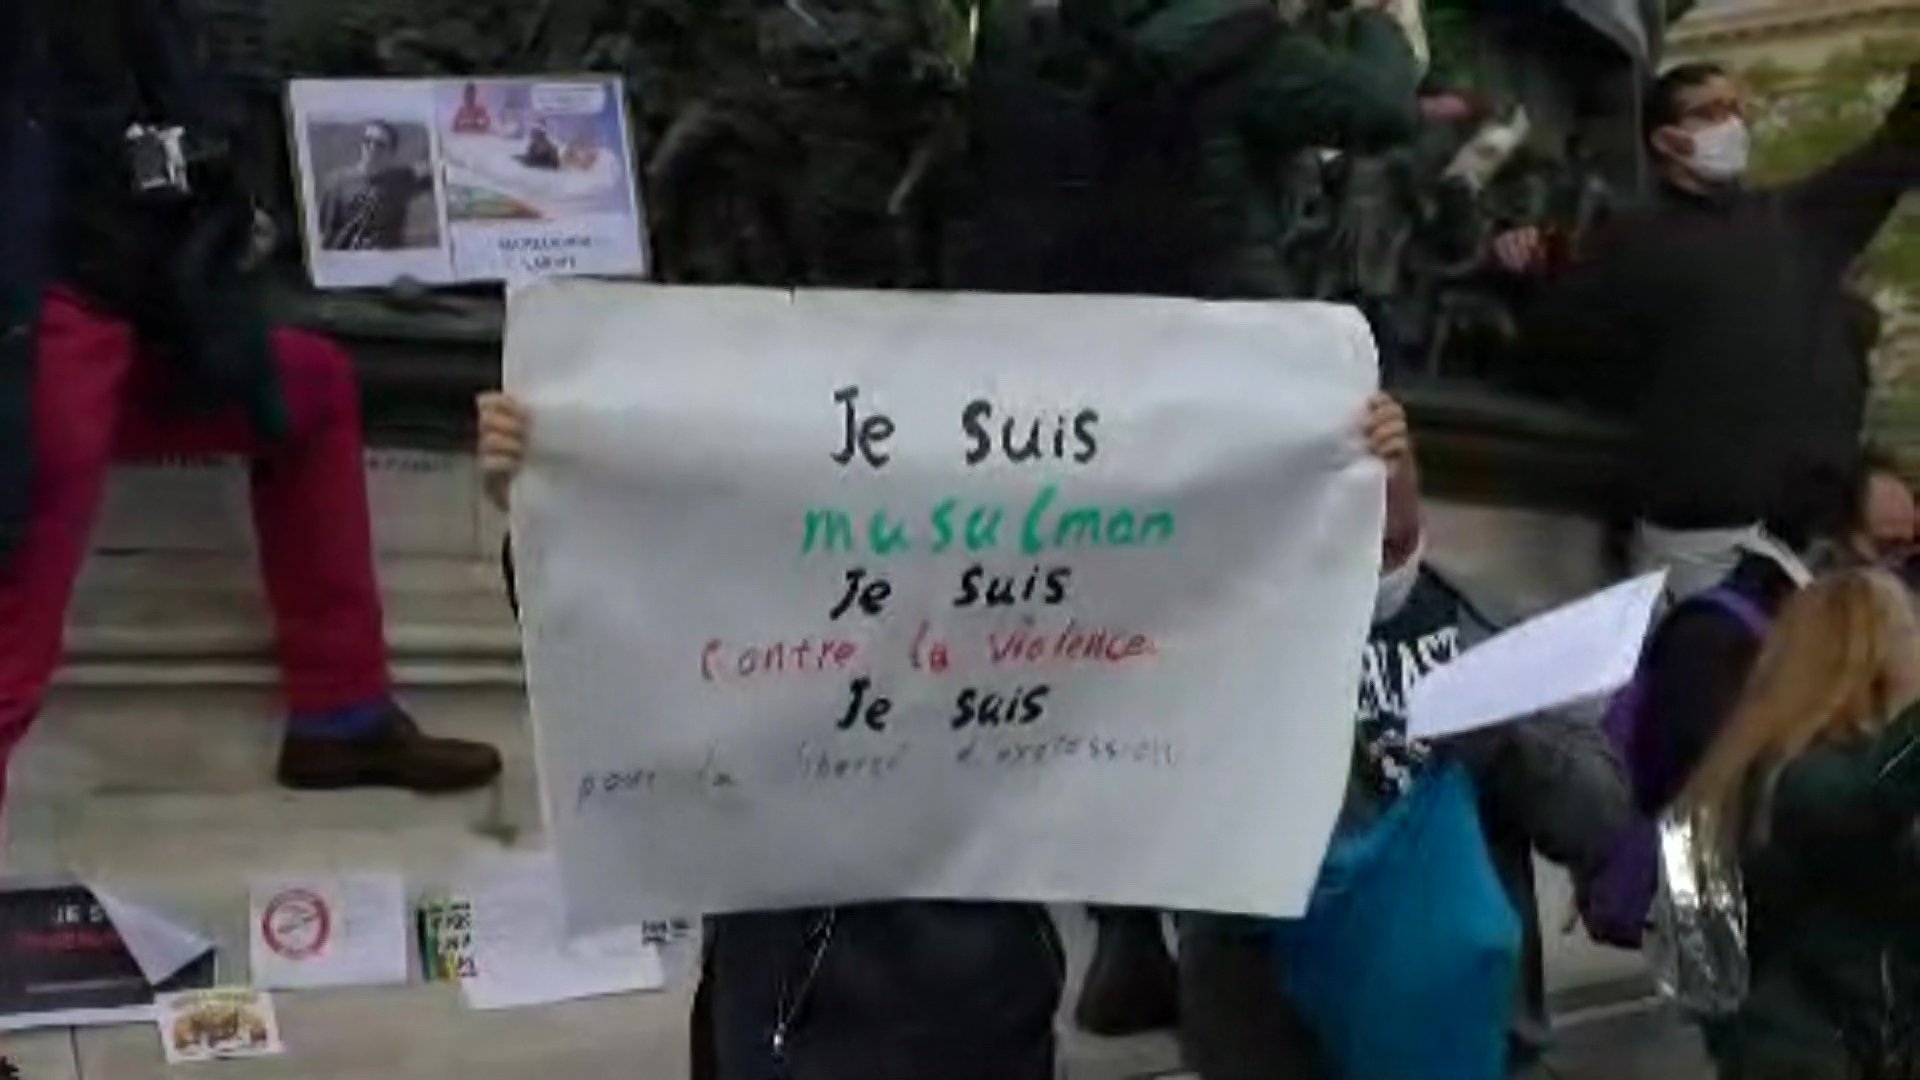 Je suis
musulman
Je suis
contre la violence.
Je suis
pour la liberté d'expression
JE S